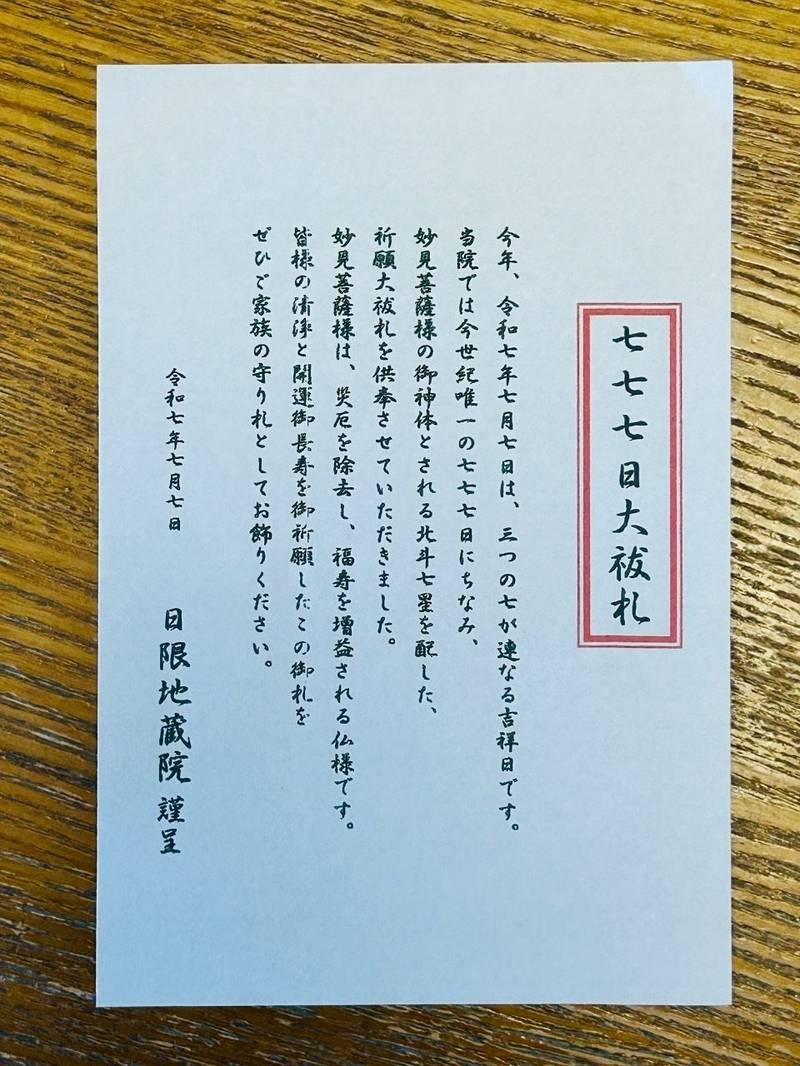 七七七日大祓札
今年、令和七年七月七日は、三つの七が連なる吉祥日です。
当院では今世紀唯一の七七七日にちなみ、
妙見菩薩様の御神体とされる北斗七星を配した、
祈願大祓札を供奉させていただきました。
妙見菩薩様は、災厄を除去し、福寿を増益される仏様です。
皆様の清浄と開運御長寿を御祈願したこの御札を
ぜひご家族の守り札としてお飾りください。
令和七年七月七日
日限地蔵院 謹呈